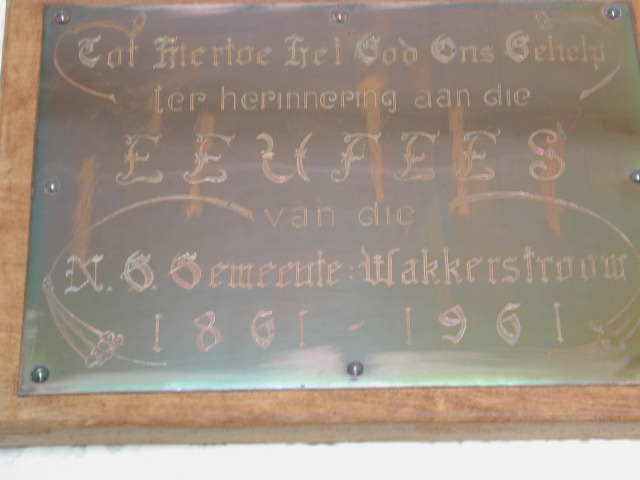 Tot Hiertoe Het God Ons Gehelp
ter herinnering aan die
EEUFEES
van die
N. G. Gemeente: Wakkerstroom
1861 - 1961